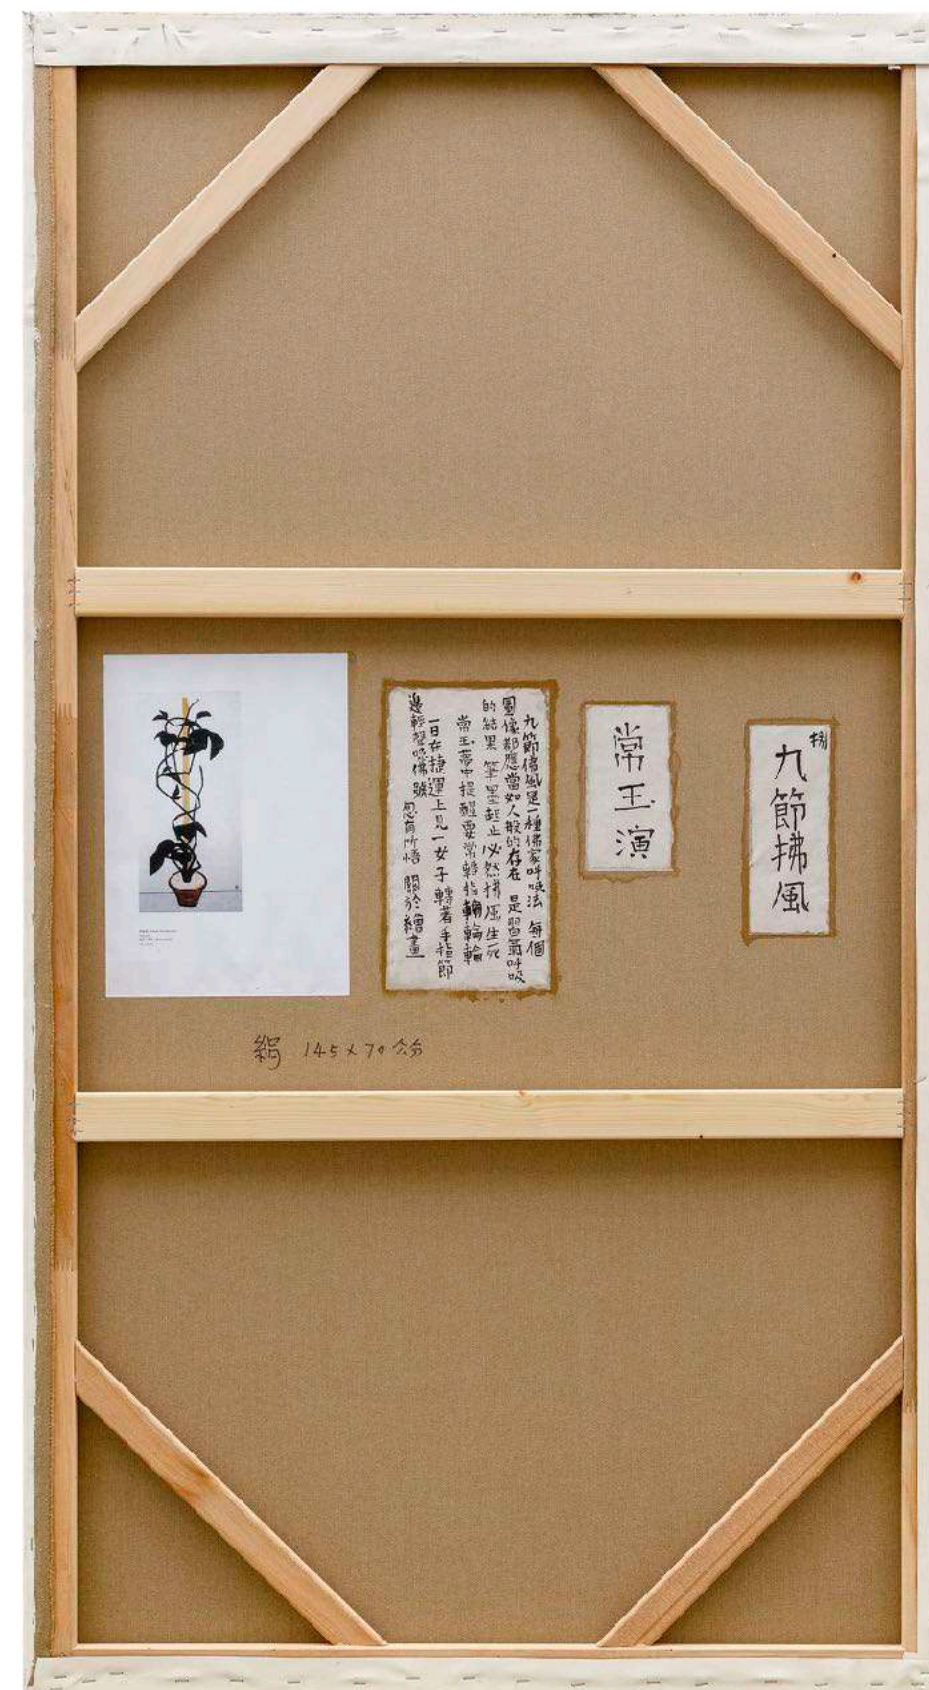 捌
九節拂風
常玉演
九節佛風是一種佛家呼吸法 每個
圖像都應當如人般的存在 是習氣呼吸
的結果 筆墨起止必然拂風生死
常玉夢中提醒要常轉指輪輪輪
一日在捷運上見一女子轉著手指節
邊輕聲唸佛號 忽有所悟 關於繪畫
絹 145x70公分